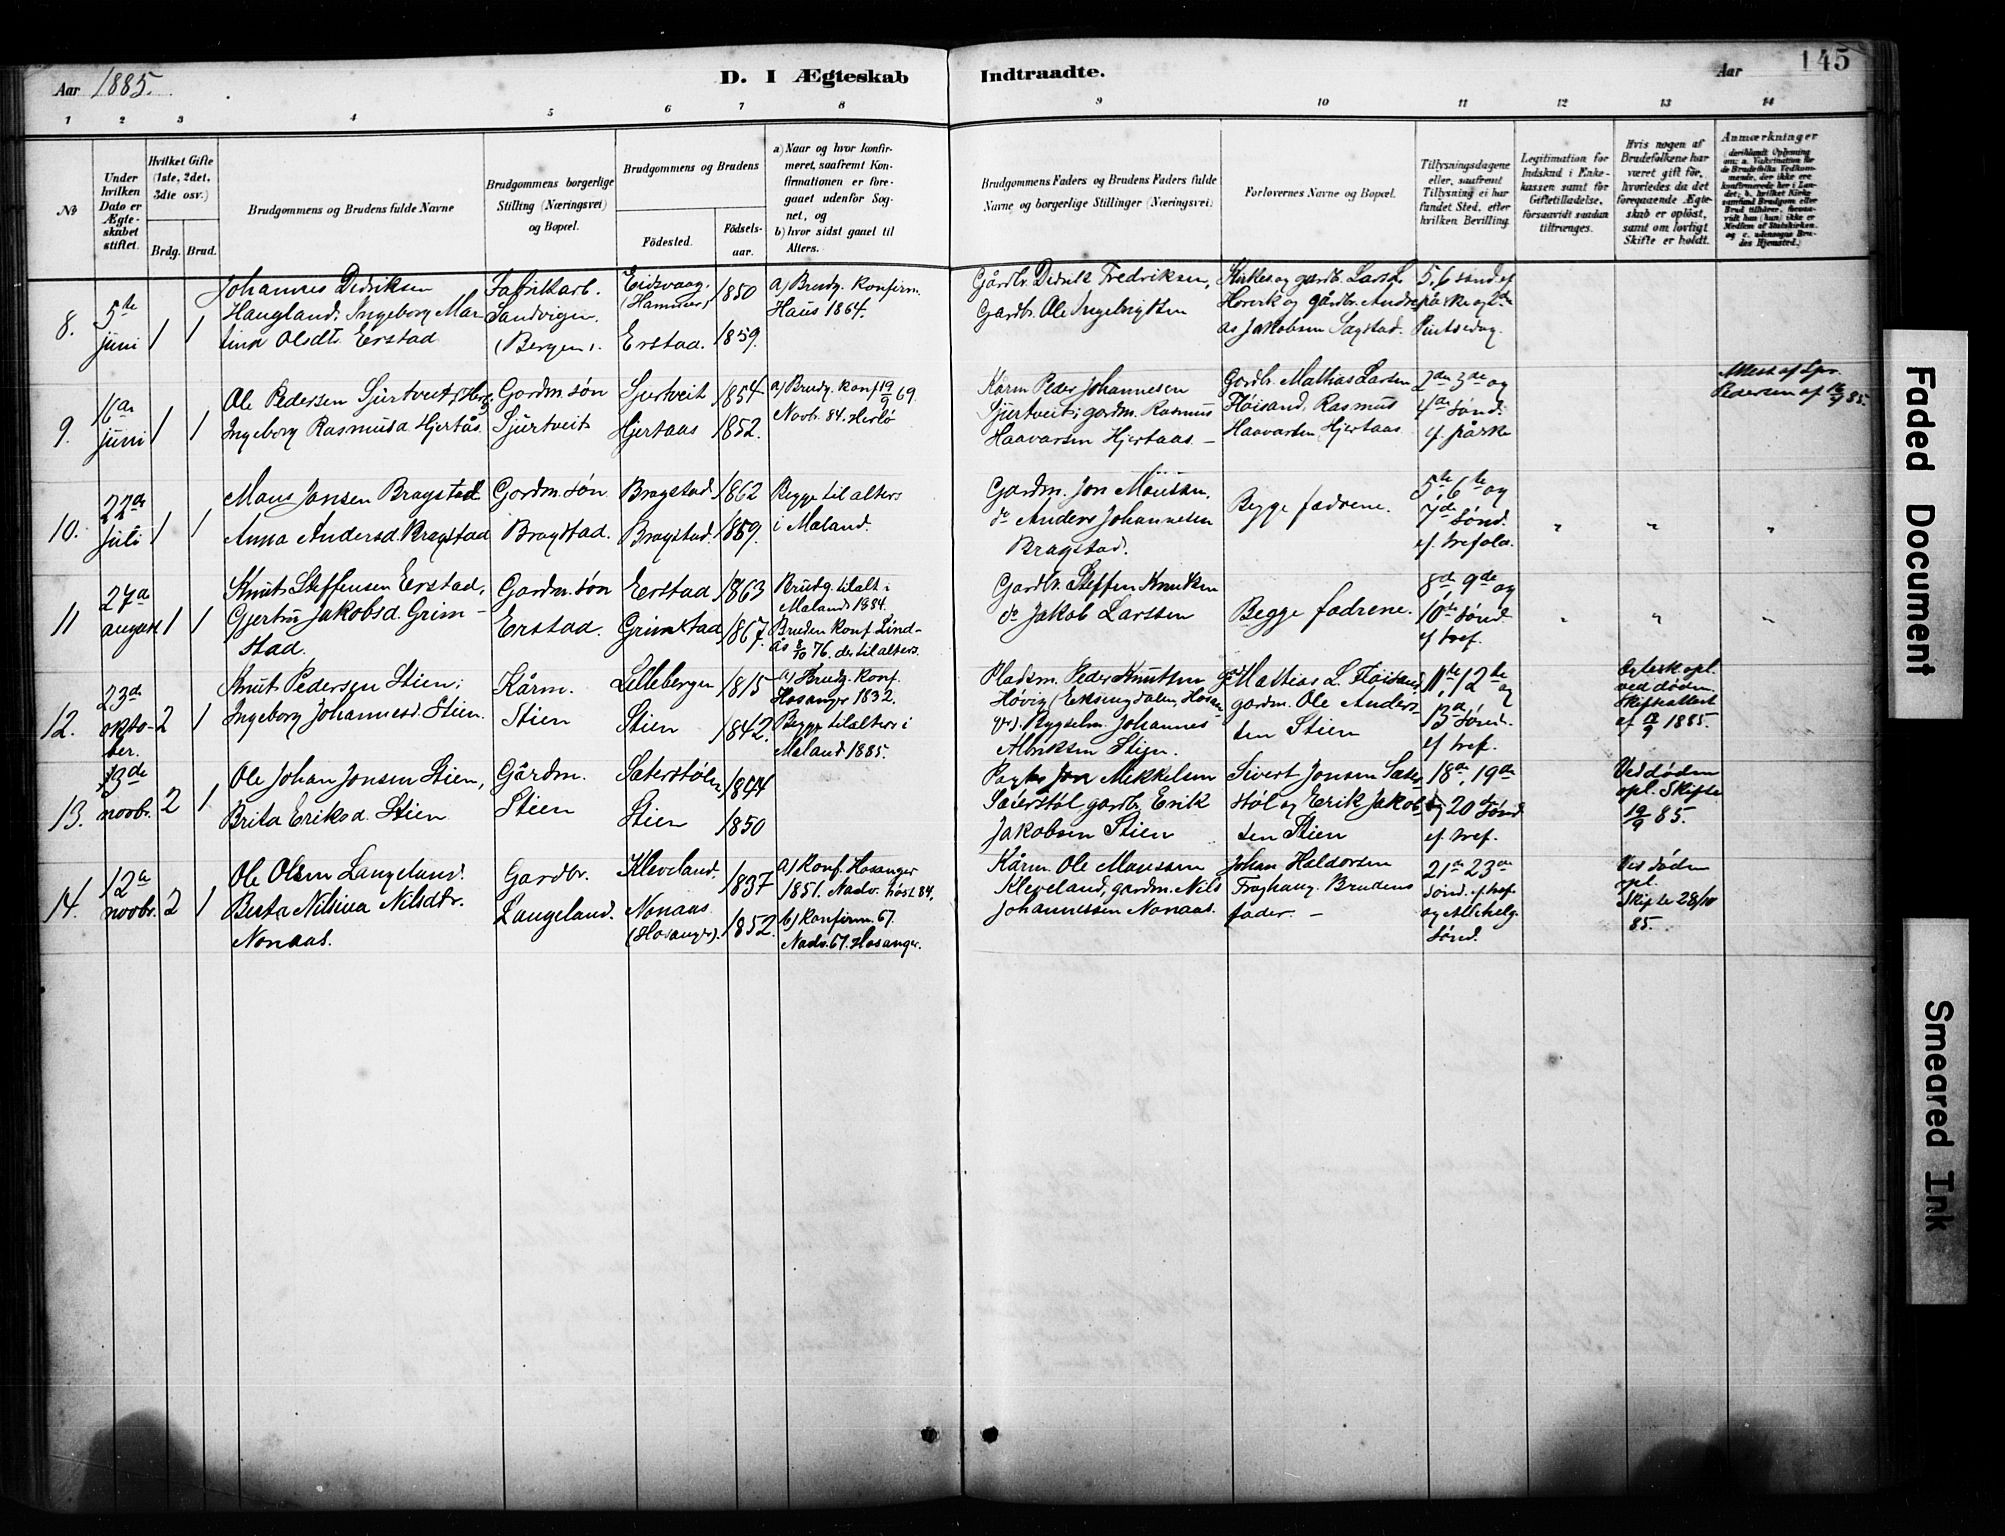 Aar 1885.
D. I Ægteskab Indtraadte.
Aar 145
1 2 3 4 5 6 7 8 9 10 11 12 13 14
№
Under hvilken Dato er Ægteskabet stiftet.
Hvilket Gifte (1ste, 2det, 3die osv.)
Brdg. Brud.
Brudgommens og Brudens fulde Navne
Brudgommens borgerlige Stilling (Næringsvei) og Bopæl.
Brudgommens og Brudens
Fødested.
Fødselsaar.
a) Naar og hvor konfirmeret, saafremt Konfirmationen er foregaaet udenfor Sognet, og
b) hvor sidst gaaet til Alters.
Brudgommens Faders og Brudens Faders fulde Navne og borgerlige Stillinger (Næringsvei)
Forlovernes Navne og Bopæl.
Tillysningsdagene eller, saafremt Tillysning ei har fundet Sted, efter hvilken Bevilling.
Legitimation for Indskud i Enkekassen samt for Giftetilladelse, forsaavidt saadan tiltrænges.
Hvis nogen af Brudefolkene har været gift før, hvorledes da det foregaaende Ægteskab er opløst, samt om lovligt Skifte er holdt.
Anmærkninger
8. 5te juni 1 1
Johannes Didriksen
Haugland. Ingeborg Mar
tina Olsdt. Erstad
Fabrikarb.
Sandvigen.
(Bergen).
Eidsvaag. (Hammer) 1850
Erstad. 1859.
a) Brudg. Konfirm.
Haus 1864.
Gårdbr. Didrik Fredriksen,
Gardbr. Ole Ingebrigtsen
Kirkes. og gardb. Lars L.
Horvik og gårdbr. Andre
as Jakobsen Sagstad.
5, 6 sønd. ef
påske og 2den
Pintsedag.
9. 16de juni 1 1
Ole Pedersen Sjurtveit,
Ingeborg Rasmusd Hjertås.
Gordm. søn
Sjurtveit
Sjurtveit 1854
Hjertaas 1852.
a) Brudg. Konf 19/9 69.
Novb. 84. Herlø
Kårm Peder Johannesen
Sjurtveit; gordm. Rasmus
Haavarsen Hjertaas. —
Gordbr. Mathias Larsen
Høisand, Rasmus
Haavarsen Hjertaas
2den 3de og
4de Sønd.
ef. påske
Attest af Spr.
Pedersen af 85.
10. 22de Juli 1 1
Mons Jonsen Bragstad
Anna Andersd. Bragstad
Gordm. søn
Bragstad.
Bragstad 1862
Bragstad. 1859.
Begge til alters
i Maland.
Gardm. Jon Monsen,
do Anders Johannesen
Bragstad.
Begge fædrene.
5te, 6te og
7de Sønd.
ef. trefold.
" " "
11 27de august 1 1
Knut Steffensen Erstad,
Gjertru Jakobsd. Grim-
stad.
Gordm. søn
Erstad.
Erstad 1863
Grimstad 1867.
Brudg. til alt i
Maland 1884.
Bruden Konf. Lind-
ås 8/10 76. der til alters.
Gardbr. Steffen Knudsen
do Jakob Larssen
Begge fædrene.
8de, 9de og
10de Sønd.
ef. tref.
" " "
12. 23de oktober. 2 1
Knut Pedersen Stien;
Ingeborg Johannesd. Stien.
Kårm.
Stien
Lilleberge 1815
Stien 1842.
a) Brudg. Konf.
Hosanger 1832.
Begge til alters i
Maland 1885.
Pladsm. Peder Knutsen
Høvig (Eksingdalen, Hosan-
ger). Bygselm. Johannes
Alriksen Stien.
Mathias L. Høisand
gordm. Ole Anders
sen Stien
11te, 12te og
13de Sønd.
ef tref.
Egtesk opl.
ved døden.
Skifteattest
af 1885.
13. 13de novbr. 2 1
Ole Johan Jonsen Stien,
Brita Eriksd. Stien
Gårdm.
Stien
Sæterstølen 1844
Stien 1850
Jon Mikkelsen
Sæterstøl gardb. Erik
Jakobsen Stien
Sivert Jonsen Sæter
støl og Erik Jakob
sen Stien
18de, 19de
og 20 Sønd
ef tref.
Ved døden
opl. Skifte
19/9 85.
14. 12te novbr. 2 1
Ole Olsen Langeland.
Berta Nilsina Nilsdtr.
Nonaas.
Gardbr.
Langeland.
Kleveland. 1837
Nonaas (Hosanger). 1852.
a) Konf. Hosanger
1851. Nadv. høst 84.
b) Konfirm. 67.
Nadv. 67. Hosanger.
Kårm. Ole Monssen
Kleveland, gardm. Nils
Johannessen Nonaas.
Johan Haldorsen
Froghaug. Brudens
fader. —
21de 23de
Sønd. ef tref
og Allehelg.
Sønd.
Ved døden
opl.
Skifte 28/10
85.
Faded Document
Smeared Ink